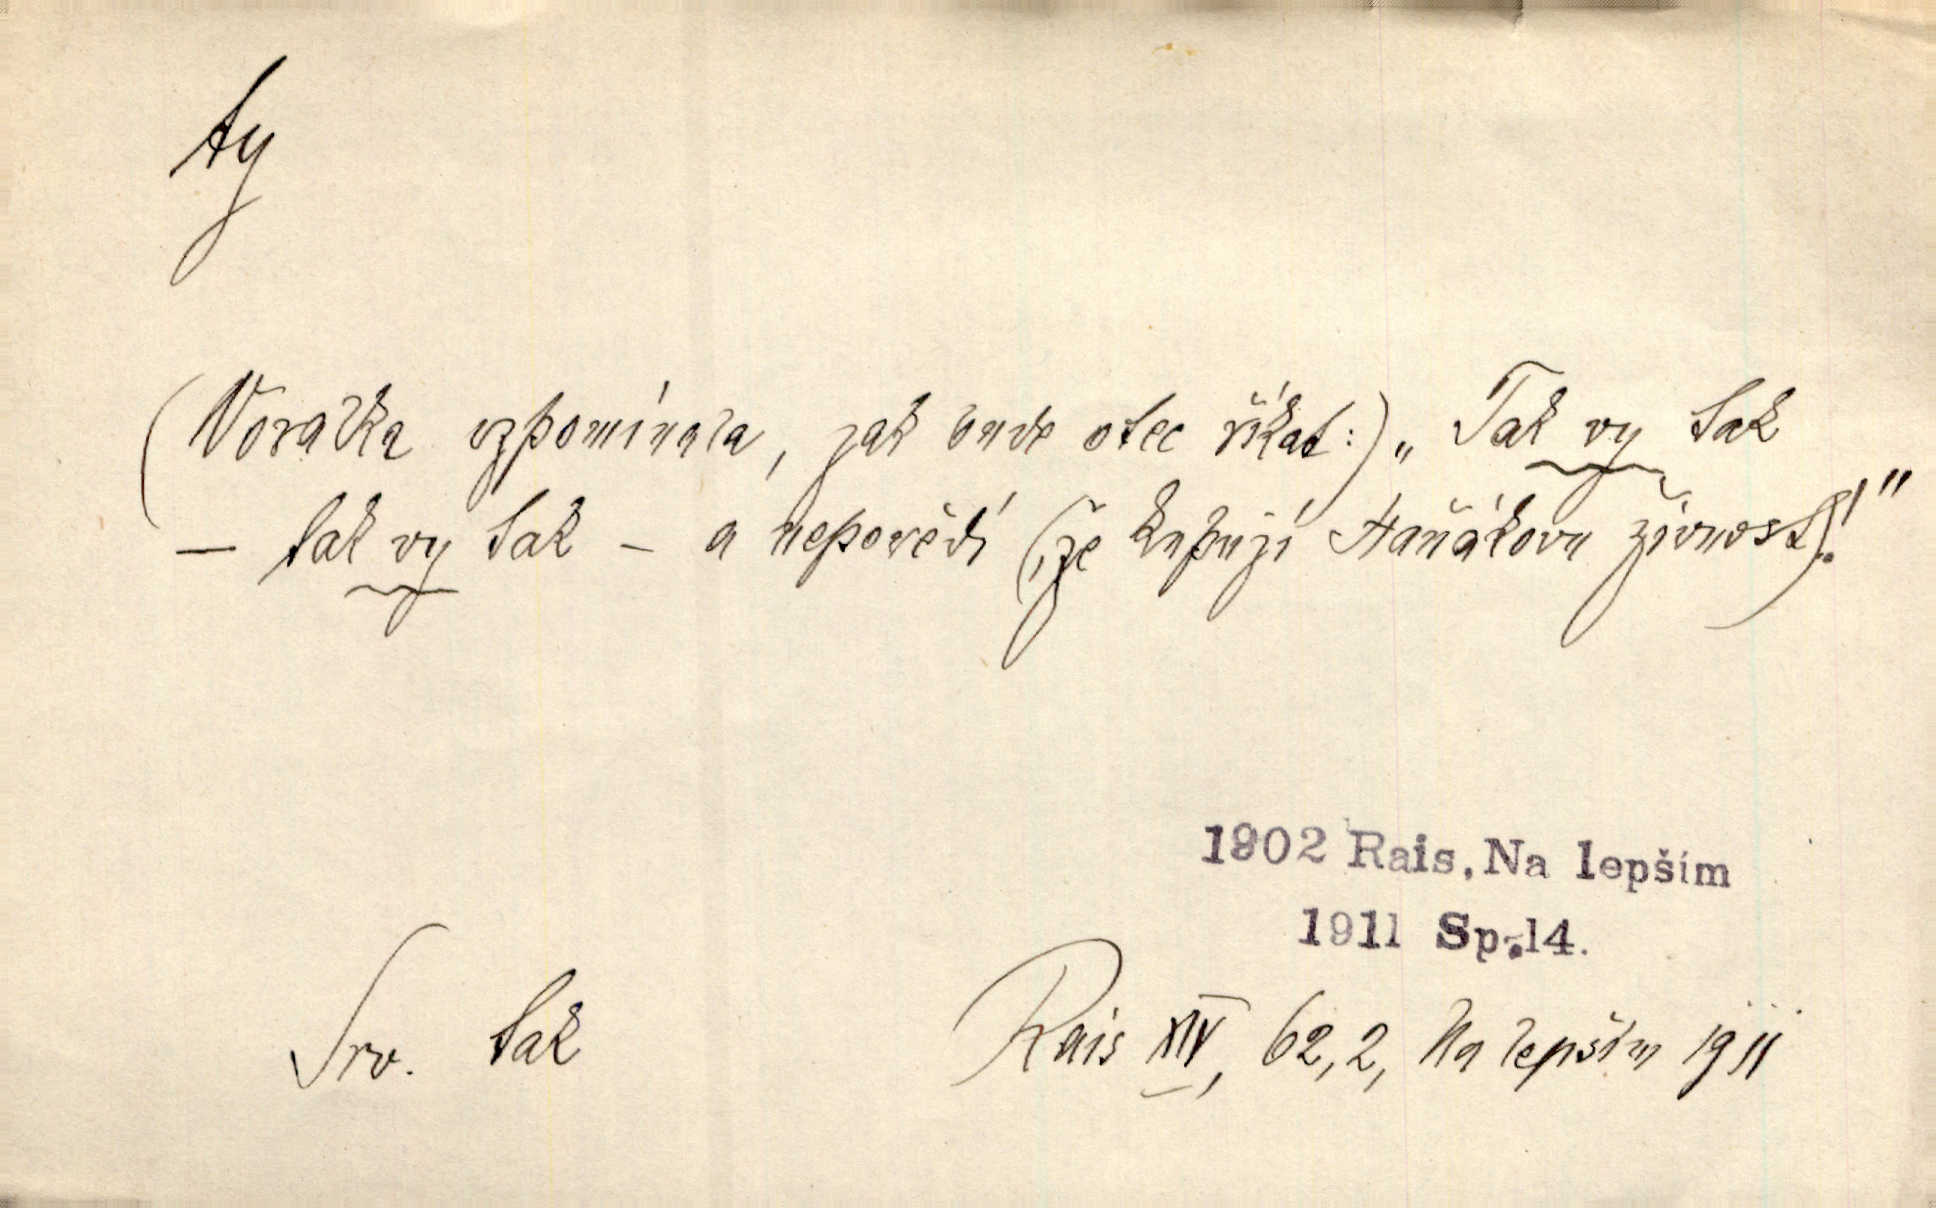 ty
(Novačka vzpomínala, jak bude otec říkat:) „Tak vy tak
— tak vy tak — a nepovědí (, že kupují Haňákovu živnost)!"
1902 Rais, Na lepším
1911 Sp. 14.
Srv. tak
Rais XIV, 62, 2, Na lepším 1911